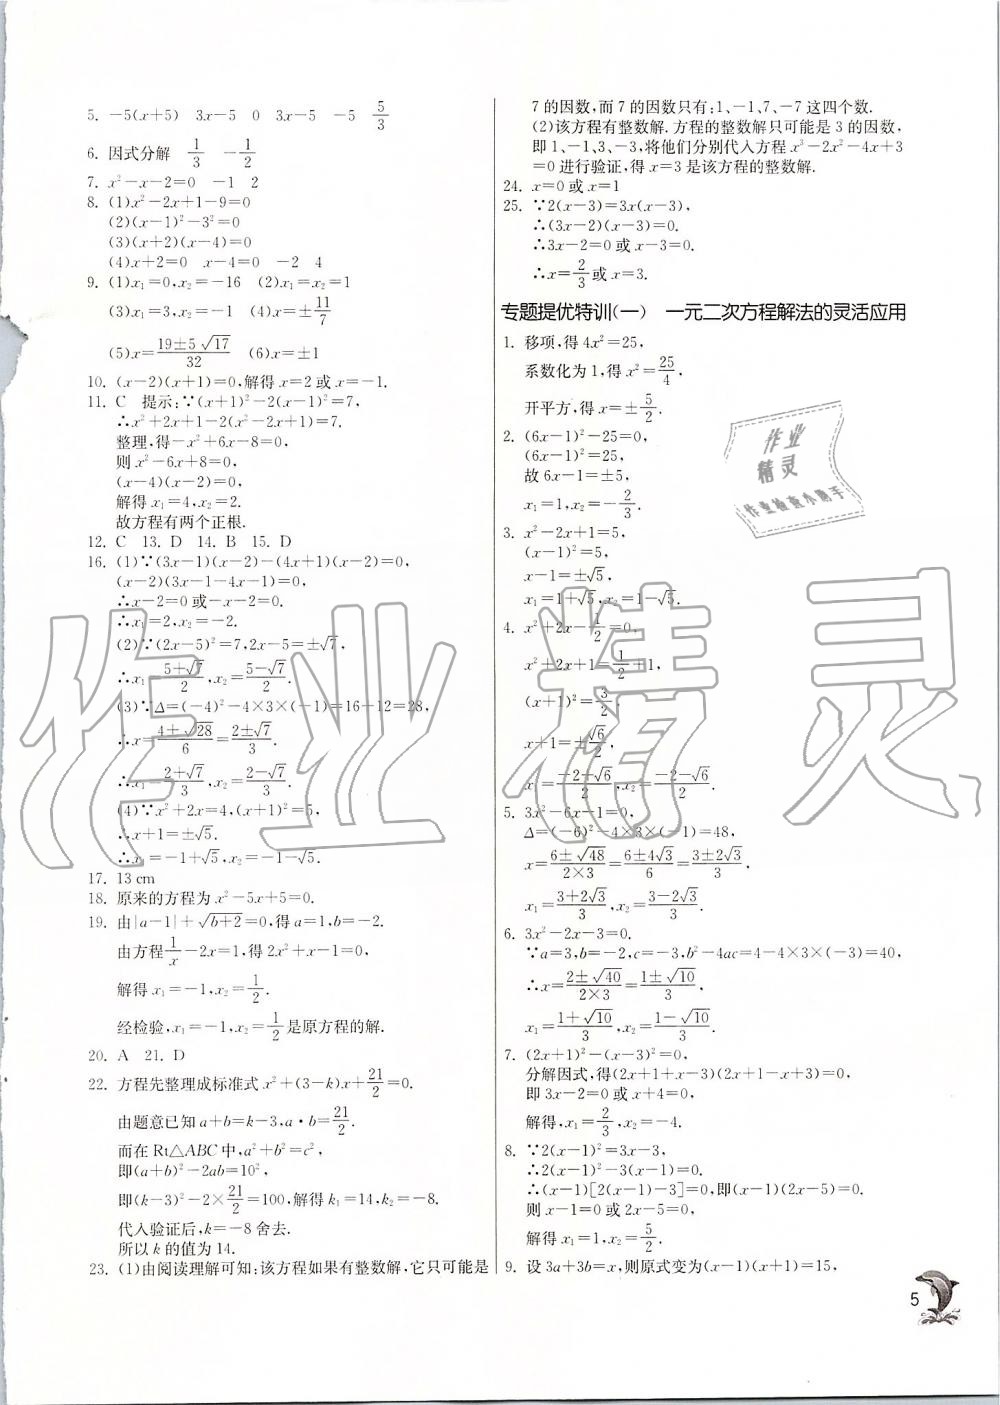 5. －5(x＋5)　3x－5　0　3x－5　－5　5/3
6. 因式分解　1/3　－1/2
7. x²－x－2＝0　－1　2
8. (1)x²－2x＋1－9＝0
(2)(x－1)²－3²＝0
(3)(x＋2)(x－4)＝0
(4)x＋2＝0　x－4＝0　－2　4
9. (1)x₁＝0,x₂＝－16　(2)x₁＝x₂＝1
(3)x₁＝3,x₂＝－1　(4)x＝±11/7
(5)x＝(19±5√17)/32　(6)x＝±1
10. (x－2)(x＋1)＝0,解得x＝2或x＝－1.
11. C　提示:∵(x＋1)²－2(x－1)²＝7,
∴x²＋2x＋1－2(x²－2x＋1)＝7.
整理,得－x²＋6x－8＝0,
则x²－6x＋8＝0,
(x－4)(x－2)＝0,
解得x₁＝4,x₂＝2.
故方程有两个正根.
12. C　13. D　14. B　15. D
16. (1)∵(3x－1)(x－2)－(4x＋1)(x－2)＝0,
(x－2)(3x－1－4x－1)＝0,
∴x－2＝0或－x－2＝0.
∴x₁＝2,x₂＝－2.
(2)∵(2x－5)²＝7,2x－5＝±√7,
∴x₁＝(5＋√7)/2,x₂＝(5－√7)/2.
(3)∵Δ＝(－4)²－4×3×(－1)＝16＋12＝28,
∴x＝(4±√28)/6＝(2±√7)/3.
∴x₁＝(2＋√7)/3,x₂＝(2－√7)/3.
(4)∵x²＋2x＝4,(x＋1)²＝5,
∴x＋1＝±√5.
∴x₁＝－1＋√5,x₂＝－1－√5.
17. 13 cm
18. 原来的方程为x²－5x＋5＝0.
19. 由|a－1|＋√(b＋2)＝0,得a＝1,b＝－2.
由方程1/x－2x＝1,得2x²＋x－1＝0,
解得x₁＝－1,x₂＝1/2.
经检验,x₁＝－1,x₂＝1/2是原方程的解.
20. A　21. D
22. 方程先整理成标准式x²＋(3－k)x＋21/2＝0.
由题意已知a＋b＝k－3,a·b＝21/2.
而在Rt△ABC中,a²＋b²＝c²,
即(a＋b)²－2ab＝10²,
即(k－3)²－2×21/2＝100,解得k₁＝14,k₂＝－8.
代入验证后,k＝－8舍去.
所以k的值为14.
23. (1)由阅读理解可知:该方程如果有整数解,它只可能是
7的因数,而7的因数只有:1、－1、7、－7这四个数.
(2)该方程有整数解.方程的整数解只可能是3的因数,
即1、－1、3、－3,将他们分别代入方程x³－2x²－4x＋3
＝0进行验证,得x＝3是该方程的整数解.
24. x＝0或x＝1
25. ∵2(x－3)＝3x(x－3),
∴(3x－2)(x－3)＝0.
∴3x－2＝0或x－3＝0.
∴x＝2/3或x＝3.
专题提优特训(一)　一元二次方程解法的灵活应用
1. 移项,得4x²＝25,
系数化为1,得x²＝25/4,
开平方,得x＝±5/2.
2. (6x－1)²－25＝0,
(6x－1)²＝25,
故6x－1＝±5,
x₁＝1,x₂＝－2/3.
3. x²－2x＋1＝5,
(x－1)²＝5,
x－1＝±√5,
x₁＝1＋√5,x₂＝1－√5.
4. x²＋2x－1/2＝0,
x²＋2x＋1＝1/2＋1,
(x＋1)²＝3/2,
x＋1＝±√6/2,
x₁＝(－2＋√6)/2,x₂＝(－2－√6)/2.
5. 3x²－6x－1＝0,
Δ＝(－6)²－4×3×(－1)＝48,
x＝(6±√48)/(2×3)＝(6±4√3)/6＝(3±2√3)/3,
x₁＝(3＋2√3)/3,x₂＝(3－2√3)/3.
6. 3x²－2x－3＝0.
∵a＝3,b＝－2,c＝－3,b²－4ac＝4－4×3×(－3)＝40,
∴x＝(2±√40)/(2×3)＝(1±√10)/3,
x₁＝(1＋√10)/3,x₂＝(1－√10)/3.
7. (2x＋1)²－(x－3)²＝0,
分解因式,得(2x＋1＋x－3)(2x＋1－x＋3)＝0,
即3x－2＝0或x＋4＝0,
解得,x₁＝2/3,x₂＝－4.
8. ∵2(x－1)²＝3x－3,
∴2(x－1)²－3(x－1)＝0.
∴(x－1)[2(x－1)－3]＝0,即(x－1)(2x－5)＝0.
则x－1＝0或2x－5＝0,
解得x₁＝1,x₂＝5/2.
9. 设3a＋3b＝x,则原式变为(x－1)(x＋1)＝15,
作业
精灵
作业检查小助手
作业精灵
5